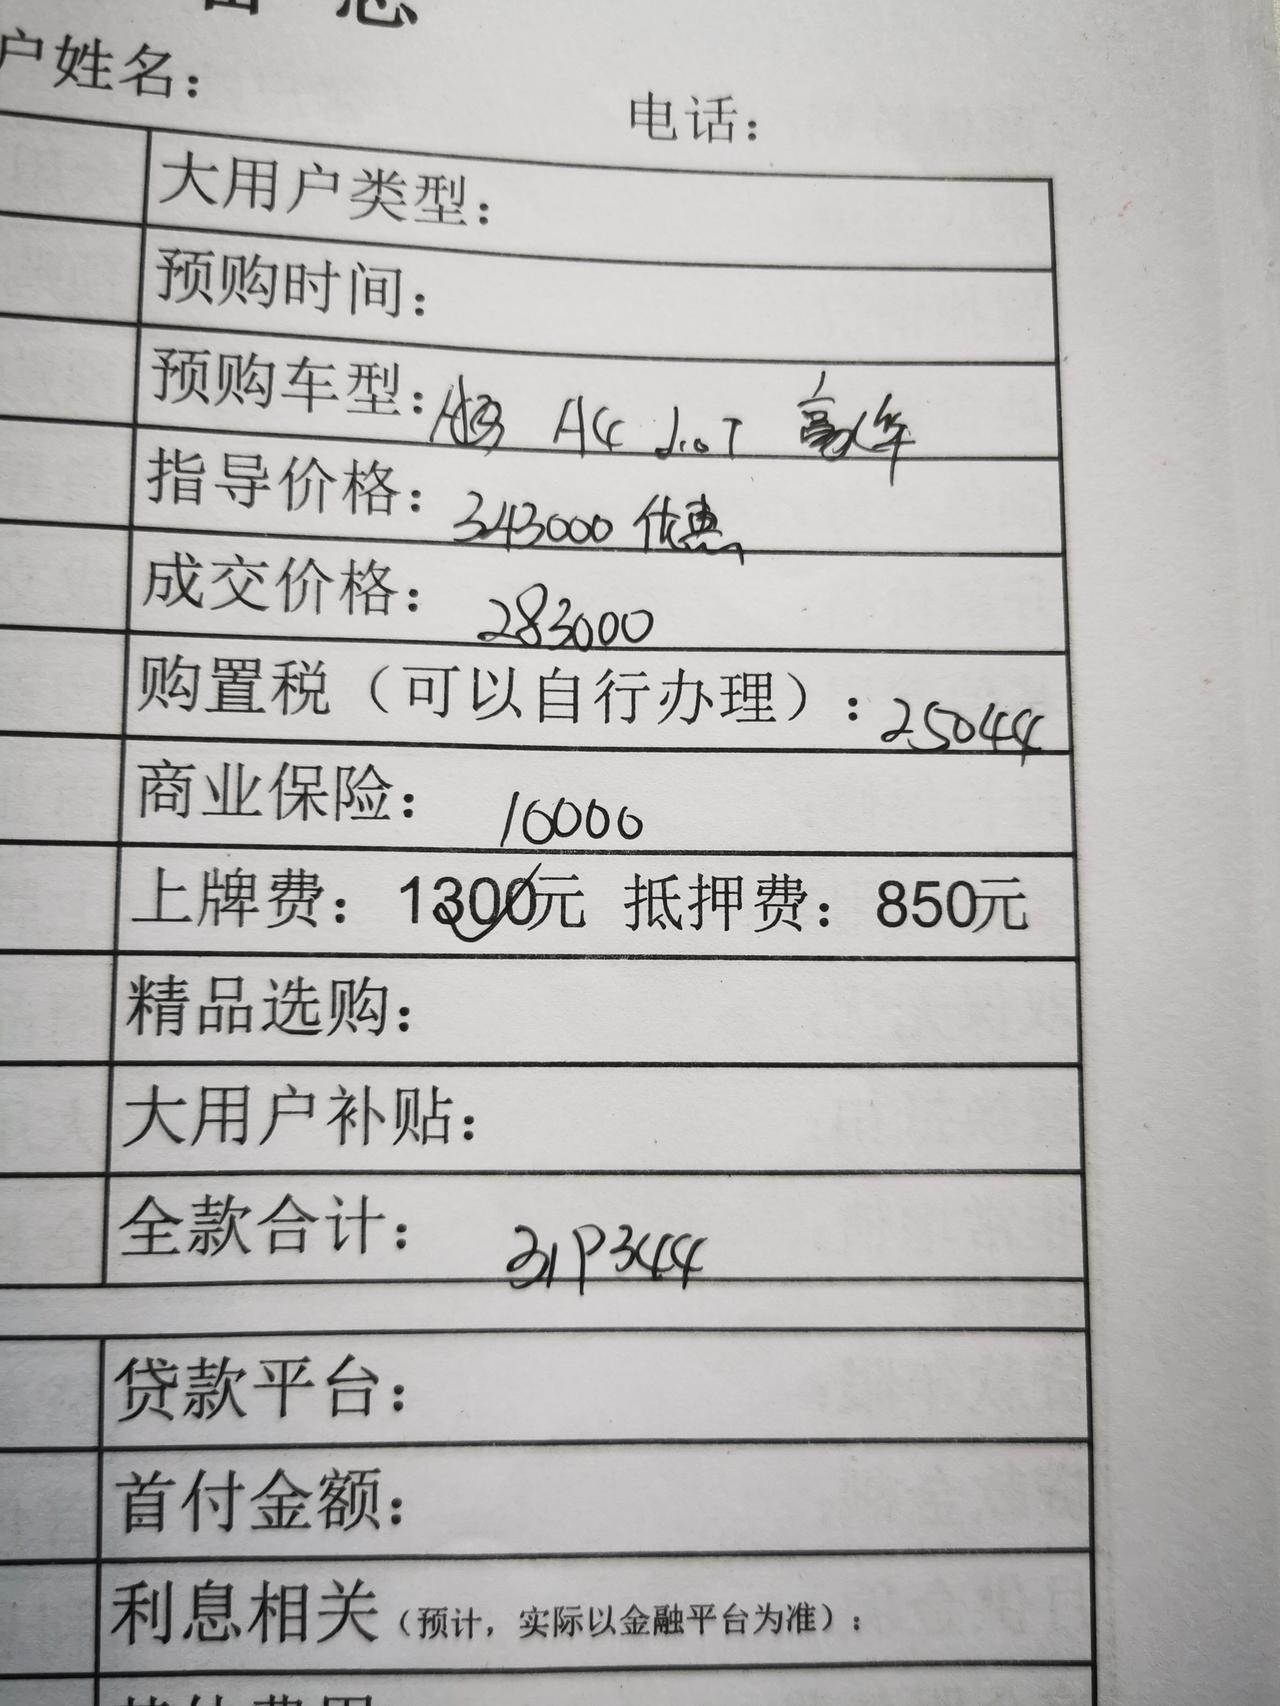 户姓名：
电话：
大用户类型：
预购时间：
预购车型： A4 2.0T 豪华
指导价格：343000 优惠
成交价格：283000
购置税（可以自行办理）：25044
商业保险：10000
上牌费：1300元 抵押费：850元
精品选购：
大用户补贴：
全款合计：319344
贷款平台：
首付金额：
利息相关（预计，实际以金融平台为准）：